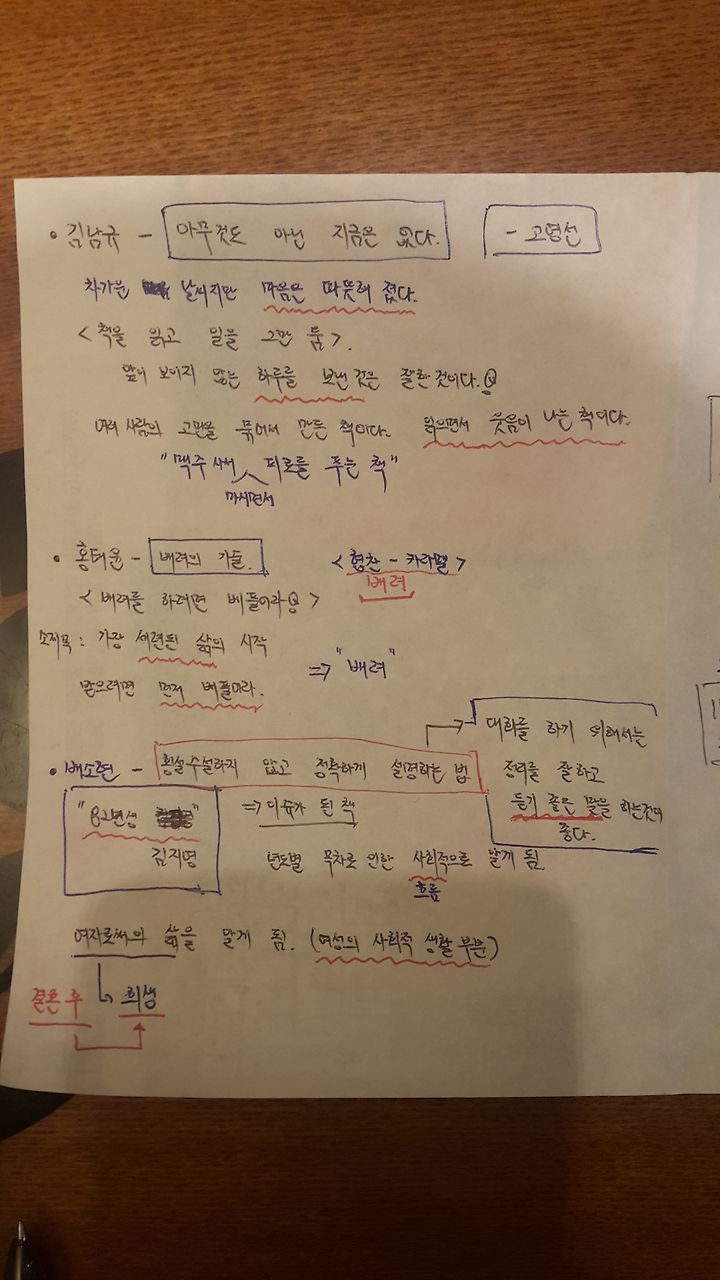 • 김남규 - 아무것도 아닌 지금은 없다. - 고영선
차가운 날씨지만 마음은 따뜻해 졌다.
< 책을 읽고 일을 그만 둠 >.
앞이 보이지 않는 하루를 보낸 것은 잘한 것이다.
여러 사람의 고민을 묶어서 만든 책이다. 읽으면서 웃음이 나는 책이다.
"맥주 사서 피로를 푸는 책"
마시면서
• 홍태윤 - 배려의 기술. < 형찬 - 카라멜 >
배려
< 배려를 하려면 베풀어라 >
소제목 : 가장 세련된 삶의 시작
⇒ "배려"
받으려면 먼저 베풀어라.
• 배소현 - 횡설수설하지 않고 정확하게 설명하는 법
대화를 하기 위해서는
정리를 잘하고
듣기 좋은 말을 하는것이
좋다.
"82년생
김지영
⇒ 이슈가 된 책
년도별 목차로 인한 사회적으로 알게 됨.
흐름
여자로써의 삶을 알게 됨. (여성의 사회적 생활 부분)
결혼 후 희생